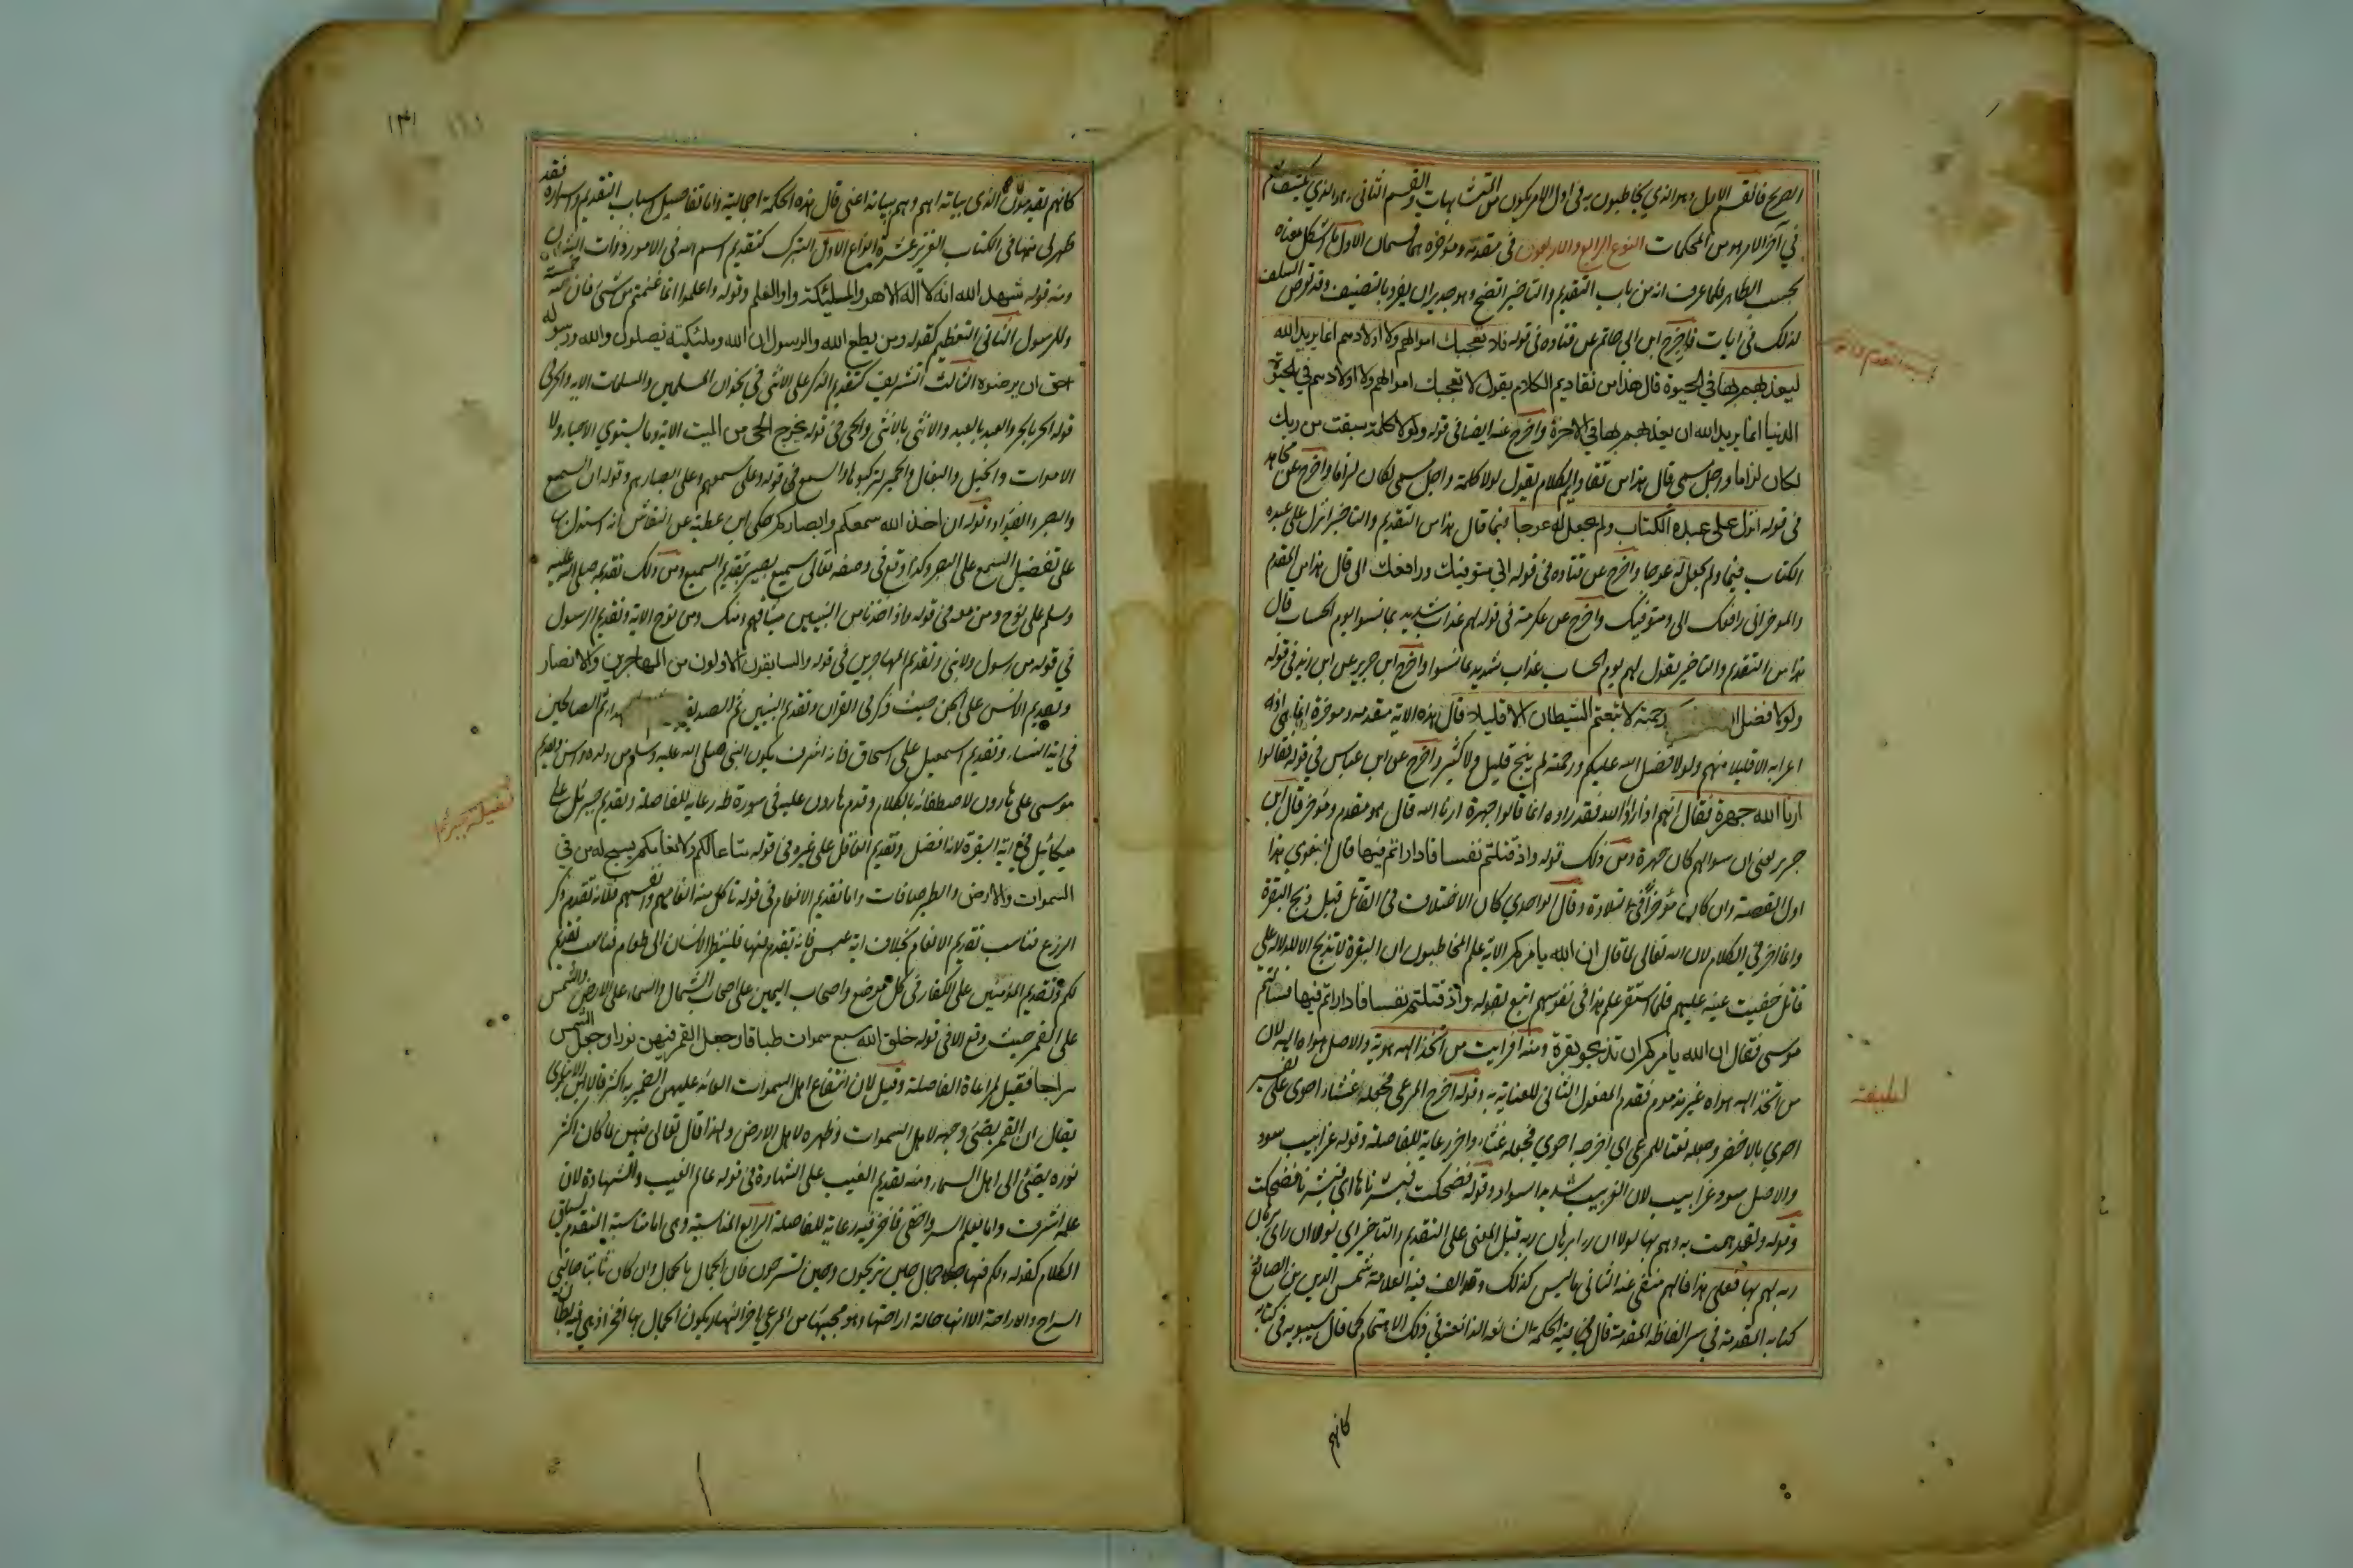 الصريح فالقسم الاول وهو الذي يخاطبون به في اول الامر يكون من المتشابهات والقسم الثاني وهو الذي يكشف لهم
في آخر الامر هو من المحكمات النوع الرابع والاربعون في مقدمه ومؤخره هما قسمان الاول ما اشكل معناه
بحسب الظاهر فلما عرف انه من باب التقديم والتاخير اتضح وهو جدير ان يفرد بالتصنيف وقد تعرض السلف
لذلك في ايات فاخرج ابن ابي حاتم عن قتاده في قوله فلا تعجبك اموالهم ولا اولادهم انما يريد الله
ليعذبهم بها في الحيوة قال هذا من تقاديم الكلام يقول لا تعجبك اموالهم ولا اولادهم في الحيوة
الدنيا انما يريد الله ان يعذبهم بها في الاخرة واخرج عنه ايضا في قوله ولولا كلمة سبقت من ربك
لكان لزاما واجل مسمى قال هذا من تقاديم الكلام يقول لولا كلمة واجل مسمى لكان لزاما واخرج عن مجاهد
في قوله انزل على عبده الكتاب ولم يجعل له عوجا قيما قال هذا من التقديم والتاخير انزل على عبده
الكتاب قيما ولم يجعل له عوجا واخرج عن قتاده في قوله اني متوفيك ورافعك الي قال هذا من المقدم
والموخر اني رافعك الي ومتوفيك واخرج عن عكرمة في قوله لهم عذاب شديد بما نسوا يوم الحساب قال
هذا من التقديم والتاخير يقول لهم يوم الحساب عذاب شديد بما نسوا واخرج ابن جرير عن ابن زيد في قوله
ولولا فضل ا رحمته لاتبعتم الشيطان الا قليلا قال هذه الاية مقدمه وموخرة انما هي اذا
اعوا به الا قليلا منهم ولولا فضل الله عليكم ورحمته لم ينج قليل ولا كثير واخرج عن ابن عباس في قوله فقالوا
ارنا الله جهرة فقال انهم اذا راوا الله فقد راوه انما قالوا جهرة ارنا الله قال هو مقدم ومؤخر قال ابن
جرير يعنى ان سوالهم كان جهرة ومن ذلك قوله واذ قتلتم نفسا فاداراتم فيها قال البغوي هذا
اول القصة وان كان مؤخرا في التلاوة وقال الواحدي كان الاختلاف في القاتل قبل ذبح البقرة
وانما اخر في الكلام لان الله تعالى لما قال ان الله يأمركم الاية علم المخاطبون ان البقرة لا تذبح الا للدلالة على
قاتل خفيت عينه عليهم فلما استقر علم هذا في نفوسهم اتبع بقوله واذ قتلتم نفسا فاداراتم فيها فسالتم
موسى فقال ان الله يأمركم ان تذبحوا بقرة ومنه افرايت من اتخذ الهه هويه والاصل هواه الهه لان
من اتخذ الهه هواه غير مذموم فقدم المفعول الثاني للعناية به وقوله اخرج المرعى فجعله غثاء احوى على تفسير
احوي بالاخضر وجعله نعتا للمرعى اي اخرجه احوي فجعله غثاء واخر رعاية للفاصلة وقوله غرابيب سود
والاصل سود غرابيب لان الغربيب شديد السواد وقوله فضحكت فبشرناها اي فبشرناها فضحكت
وقوله ولقد همت به وهم بها لولا ان را برهان ربه قيل المعنى على التقديم والتاخير اي لولا ان راى برهان
ربه لهم بها فعلى هذا فالهم منفى عنه الثاني ما ليس كذلك وقد الف فيه العلامة شمس الدين بن الصائغ
كتابه المقدمة في سر الفاظه المقدمة قال فيه الحكمة الشائعة الذائعة في ذلك الاهتمام كما قال سيبويه في كتابه
كانهم
لطيفة
١٣١
كانهم يقدمون الذي بيانه اهم وهم ببيانه اعنى قال هذه الحكمة اجمالية واما تفاصيل اسباب التقديم واسراره فقد
ظهر لي منها في الكتاب العزيز عشرة انواع الاول التبرك كتقديم اسم الله في الامور ذوات الشان
ومنه قوله شهد الله انه لا اله الا هو والملئكة واولوا العلم وقوله واعلموا انما غنمتم من شئ فان لله خمسه
وللرسول الثاني التعظيم كقوله ومن يطع الله والرسول ان الله وملئكته يصلون والله ورسوله
احق ان يرضوه الثالث التشريف كتقديم الذكر على الانثى في نحو ان المسلمين والمسلمات الاية والحر في
قوله الحر بالحر والعبد بالعبد والانثى بالانثى والحي في قوله يخرج الحي من الميت الاية وما يستوي الاحياء ولا
الاموات والخيل والبغال والحمير لتركبوها والسمع في قوله وعلى سمعهم وعلى ابصارهم وقوله ان السمع
والبصر والفؤاد وقوله ان اخذ الله سمعكم وابصاركم حكى ابن عطية عن النقاش انه استدل بها
على تفضيل السمع على البصر وكذا وقع في وصفه تعالى سميع بصير بتقديم السميع ومن ذلك تقديمه صلى الله عليه
وسلم على نوح ومن معه في قوله واذ اخذنا من النبيين ميثاقهم ومنك ومن نوح الاية وتقديم الرسول
في قوله من رسول ولا نبي وتقديم المهاجرين في قوله والسابقون الاولون من المهاجرين والانصار
وتقديم الانس على الجن حيث ذكر في القران وتقديم النبيين ثم الصديقـ ـهداء ثم الصالحين
في اية النساء وتقديم اسمعيل على اسحاق فانه اشرف بكون النبي صلى الله عليه وسلم من ولده واسن وتقديم
موسى على هارون لاصطفائه بالكلام وقدم هارون عليه في سورة طه رعاية للفاصلة وتقديم جبرئيل على
ميكائيل في اية البقرة لانه افضل وتقديم العاقل على غيره في قوله متاعا لكم ولانعامكم يسبح له من في
السموات والارض والطير صافات واما تقديم الانعام في قوله تاكل منه انعامهم وانفسهم فلانه تقدم ذكر
الزرع فناسب تقديم الانعام بخلاف اية عبس فانه تقدم فيها فلينظر الانسان الى طعامه فناسب تقديم
لكم وتقديم المؤمنين على الكفار في كل موضع واصحاب اليمين على اصحاب الشمال والسماء على الارض والشمس
على القمر حيث وقع الا في قوله خلق الله سبع سموات طباقا وجعل القمر فيهن نورا وجعل الشمس
سراجا فقيل لمراعاة الفاصلة وقيل لان انتفاع اهل السموات العائد عليهن الضمير به اكثر قال ابن الانباري
يقال ان القمر يضئ وجهه لاهل السموات وظهره لاهل الارض ولهذا قال تعالى فيهن لما كان اكثر
نوره يضئ الى اهل السماء ومنه تقديم الغيب على الشهادة في قوله عالم الغيب والشهادة لان
علمه اشرف واما يعلم السر واخفى فاخر فيه رعاية للفاصلة الرابع المناسبة وهي اما مناسبة المتقدم لسياق
الكلام كقوله ولكم فيها جمال حين تريحون وحين تسرحون فان الجمال بالجمال وان كان ثابتا حالتي
السراح والاراحة الا انها حالة اراحتها وهو مجيئها من المرعى اخر النهار يكون الجمال بها افخر اذ هي فيه بطان